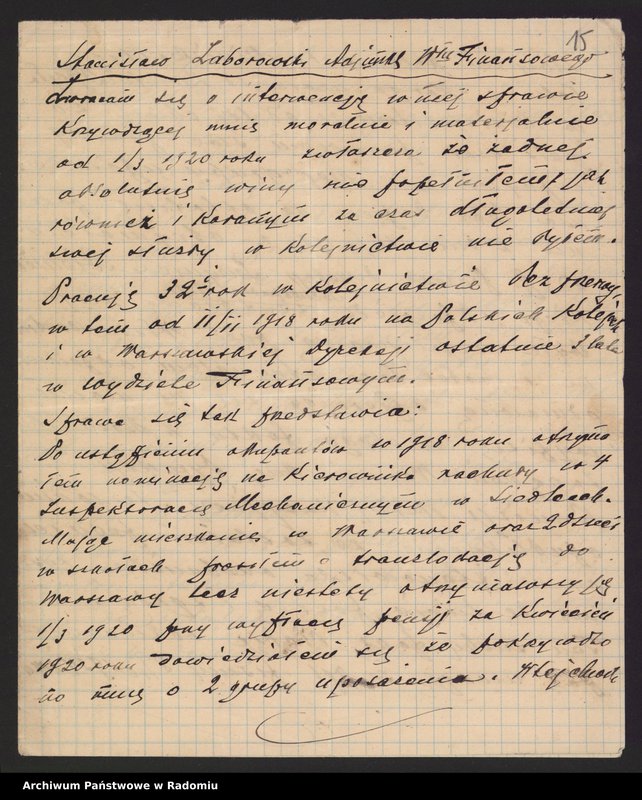 15
Stanisław Zaborowski Adjunkt Włu Finansowego
Zwracam się o interwencję w mej sprawie
krzywdzącej mnie moralnie i materjalnie
od 1/3 1920 roku zwłaszcza że żadnej
absolutnie winy nie popełniłem, jak
również i karanym za czas długoletniej
swej służby w Kolejnictwie nie byłem.
Pracuję 32 rok w Kolejnictwie bez przerwy
w tem od 11/11 1918 roku na Polskich Kolejach
i w Warszawskiej Dyrekcji ostatnie 3 lata
w wydziele Finansowym.
Sprawa się tak przedstawia:
Po ustąpieniu okupantów w 1918 roku otrzyma
łem nominację na Kierownika rachuby w 4
Inspektoracie Mechanicznym w Siedlcach.
Mając mieszkanie w Warszawie oraz 2 dzieci
w szkołach prosiłem o translokację do
Warszawy lecz niestety otrzymawszy ją
1/3 1920 przy wypłacie pensji za Kwiecień
1920 roku dowiedziałem się że pokrzywdzo
no mnie o 2 grupy uposażenia.